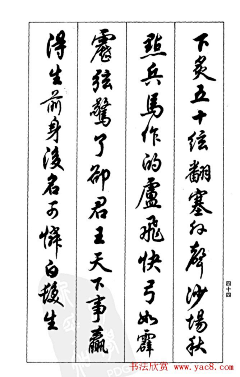 下炙五十弦翻塞外声沙場秋
點兵馬作的盧飛快弓如霹
靂弦驚了卻君王天下事贏
得生前身後名可憐白髮生
四十四
书法欣赏
www.yac8.com